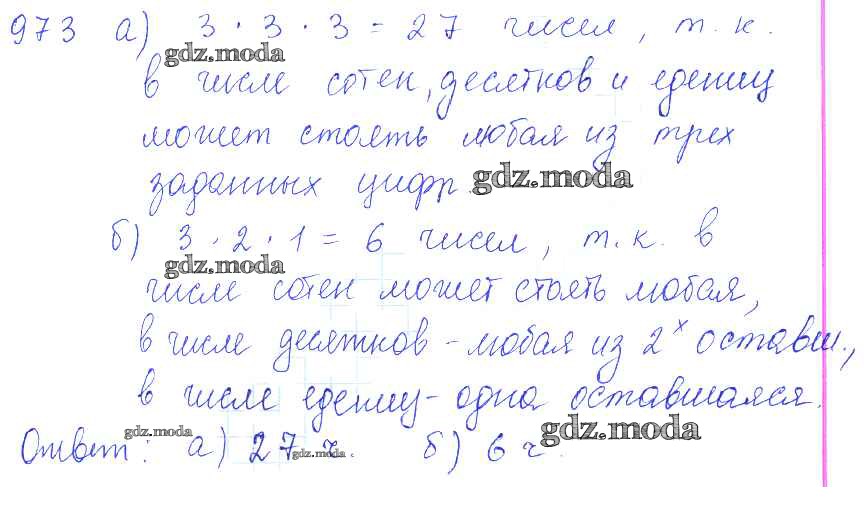 973 а) 3 · 3 · 3 = 27 чисел, т. к.
gdz.moda
в числе сотен, десятков и едениц
может стоять любая из трех
заданных цифр. gdz.moda
б) 3 · 2 · 1 = 6 чисел, т. к. в
gdz.moda
числе сотен может стоять любая,
в числе десятков - любая из 2х оставш.,
в числе едениц - одна оставшаяся.
gdz.moda gdz.moda
Ответ: а) 27 ч. б) 6 ч.
gdz.moda